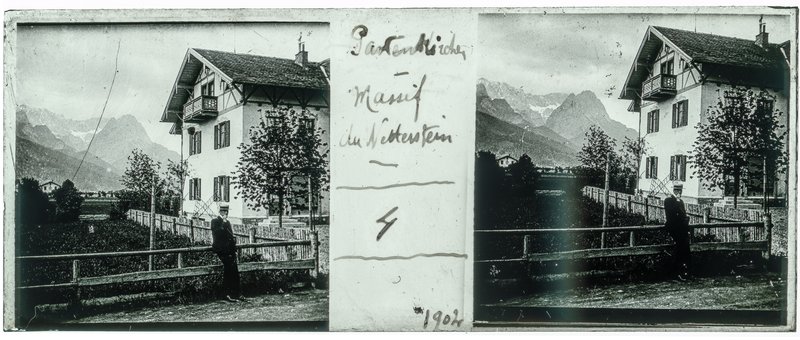 Partenkirchen
Massif
du Wetterstein
4
1902